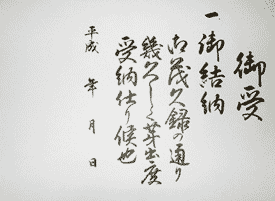 御受
一 御結納
右茂久録の通り
幾久しく芽出度
受納仕り候也
平成 年 月 日